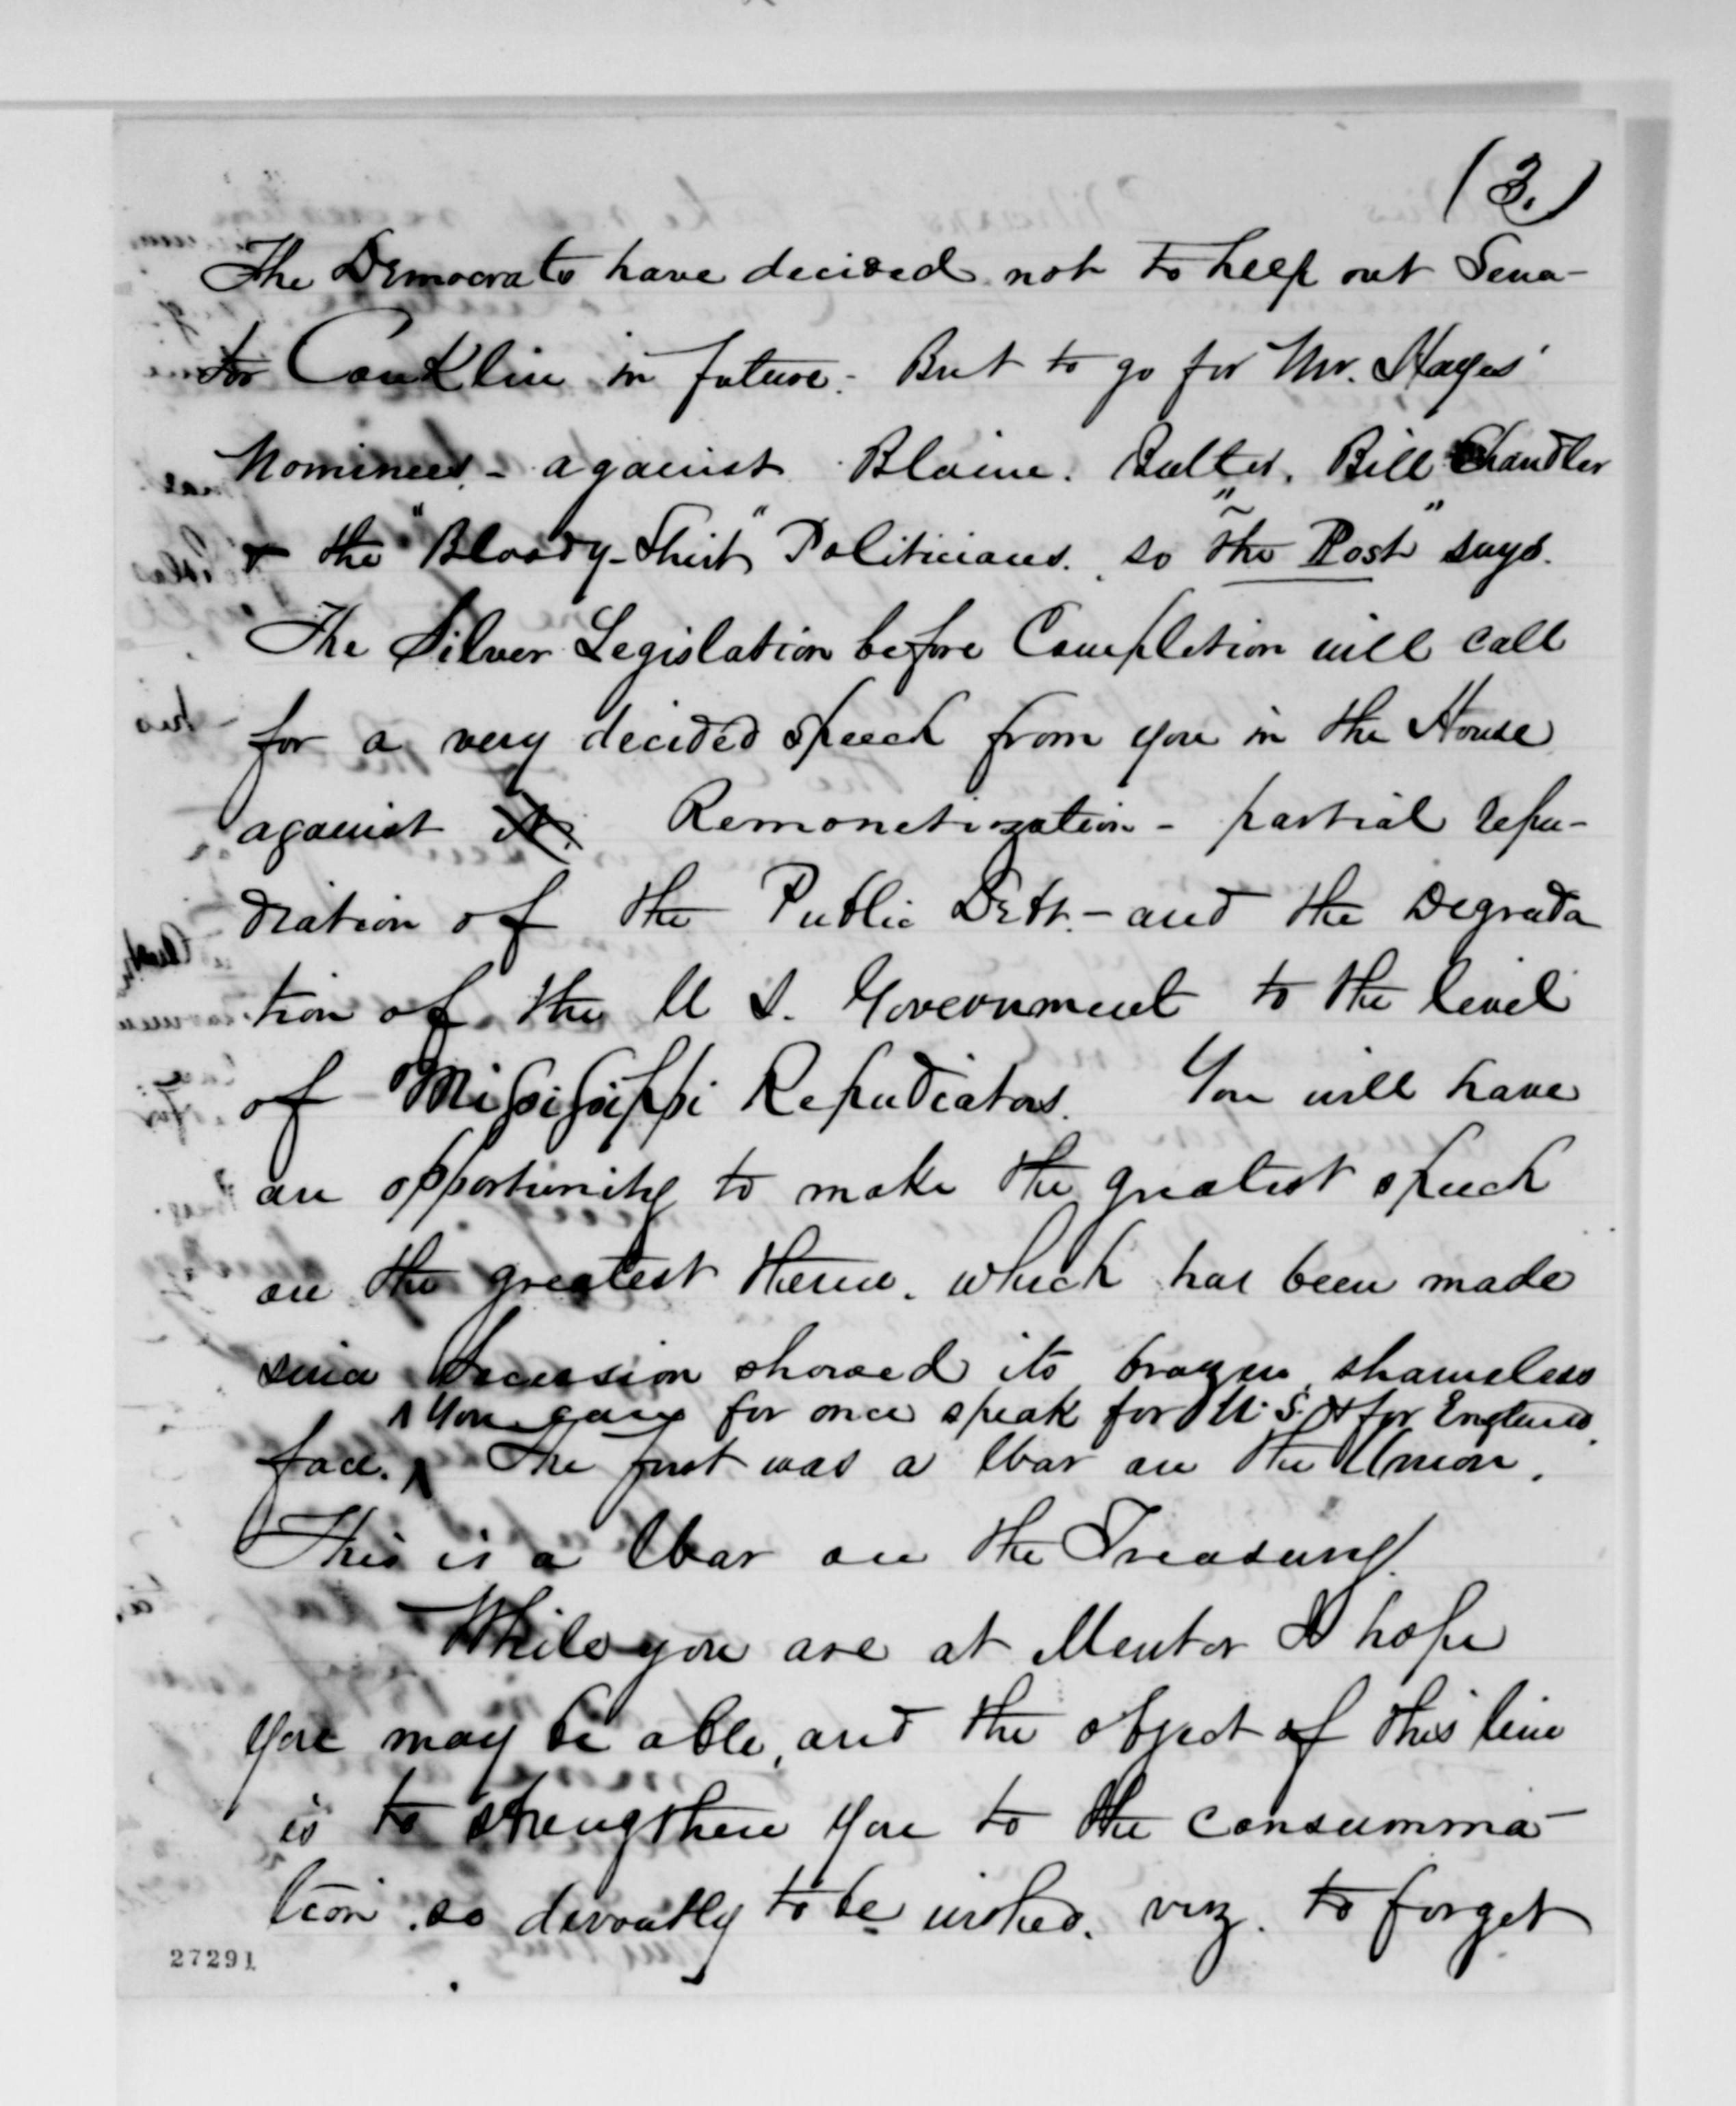 (3.)
The Democrats have decided not to help out Sena-
tor Conklin in future. But to go for Mr. Hayes'
Nominees, - against Blaine. Butler, Bill Chandler
& the "Bloody-Shirt" Politicians. so "The Post" says.
The Silver Legislation before Completion will call
for a very decided speech from you in the House
against it. Remonetization - partial repu-
diation of the Public Debt. - and the Degrada
tion of the U S. Government to the level
of Mississippi Repudiators. You will have
an opportunity to make the greatest speech
on the greatest theme, which has been made
since Secession showed its brazen, shameless
You can for once speak for U. S. & for England.
face. The first was a War on the Union.
This is a War on the Treasury.
While you are at Mentor I hope
you may be able, and the object of this line
is to strengthen you to the consumma-
tion so devoutly to be wished. viz. to forget
27291